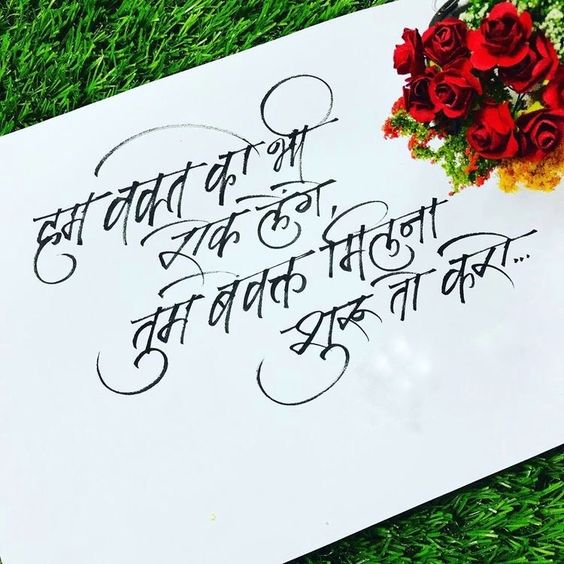 हम वक्त को भी
रोक लेंगे,
तुम बेवक्त मिलना
शुरू तो करो...